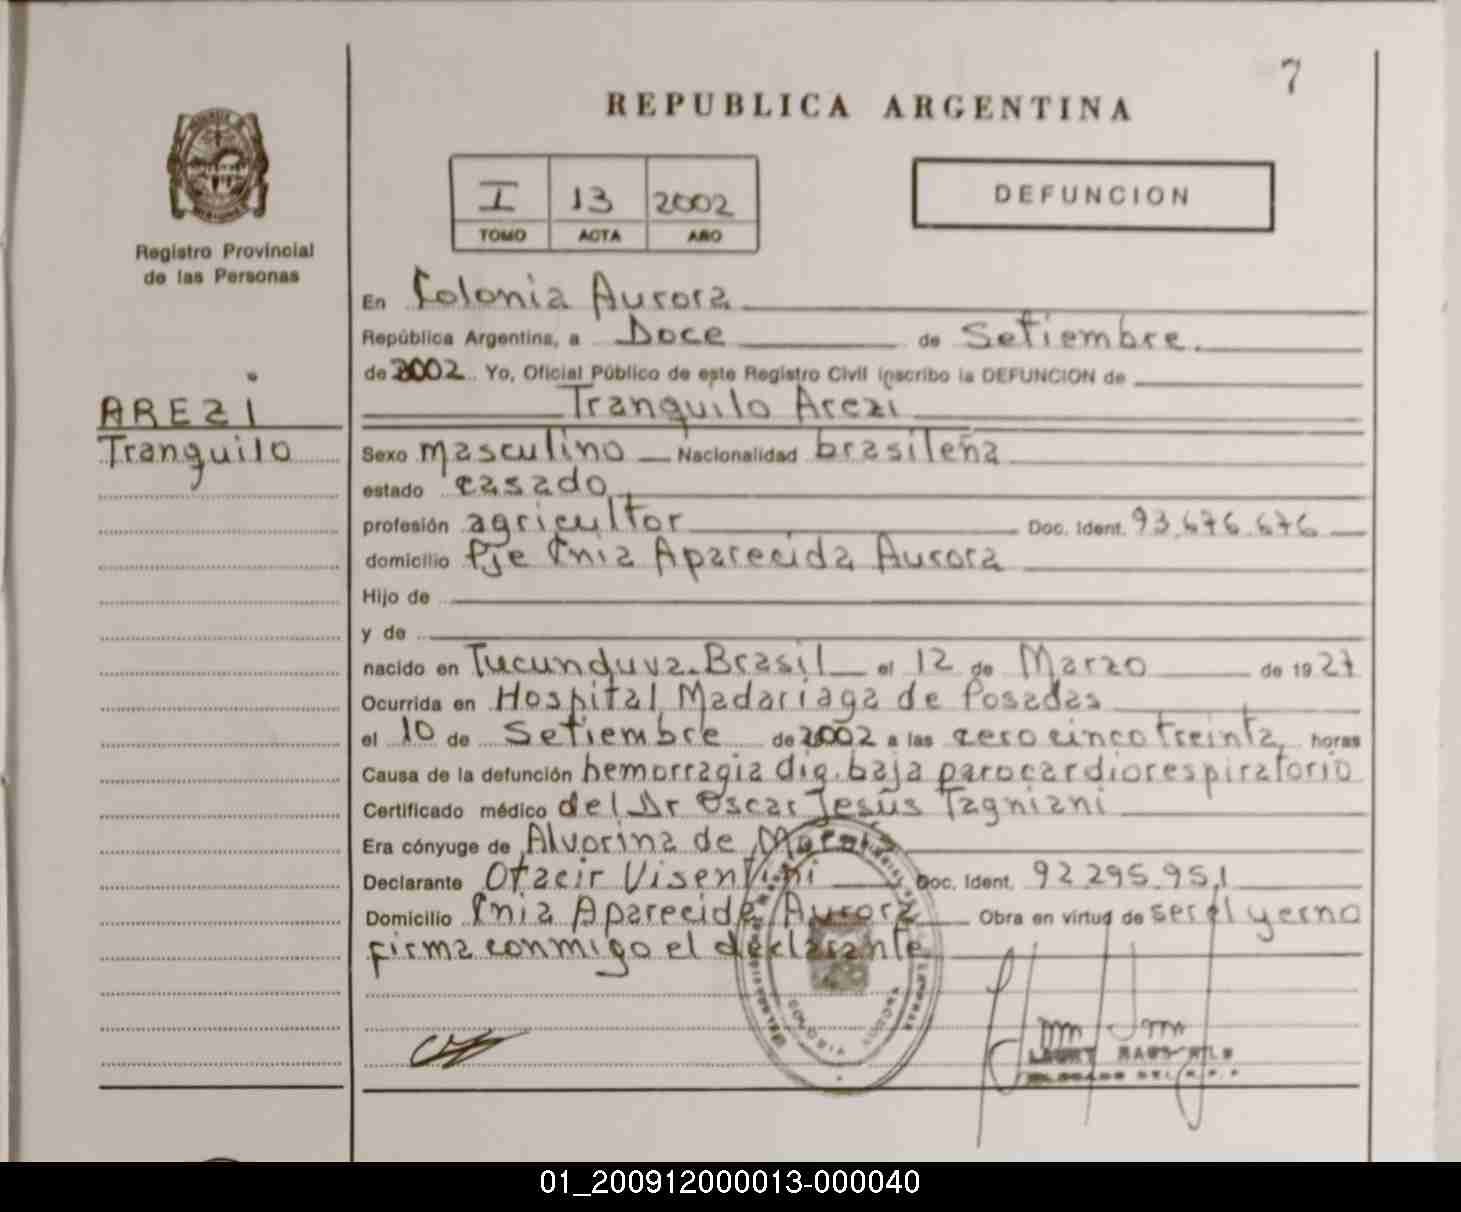 7
REPUBLICA ARGENTINA
I 13 2002
TOMO ACTA AÑO
DEFUNCION
Registro Provincial
de las Personas
AREZI
Tranquilo
En Colonia Aurora
República Argentina, a Doce de Setiembre
de 2002. Yo, Oficial Público de este Registro Civil inscribo la DEFUNCION de
Tranquilo Arezi
Sexo masculino Nacionalidad brasileña
estado casado
profesión agricultor Doc. Ident. 93.676.676
domicilio Pje Cnia Aparecida Aurora
Hijo de
y de
nacido en Tucunduva-Brasil el 12 de Marzo de 1927
Ocurrida en Hospital Madariaga de Posadas
el 10 de Setiembre de 2002 a las cero cinco treinta horas
Causa de la defunción hemorragia dig. baja parocardiorespiratorio
Certificado médico del Dr Oscar Jesús Tagniani
Era cónyuge de Alvorina de
Declarante Otacir Visentini Doc. Ident. 92.295.951
Domicilio Cnia Aparecida Aurora Obra en virtud de ser el yerno
firma conmigo el declarante
01_200912000013-000040